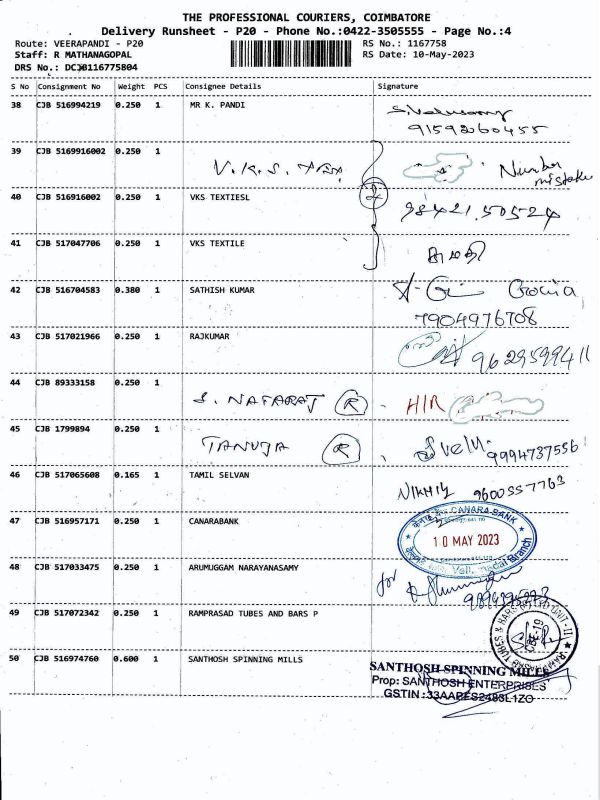 THE PROFESSIONAL COURIERS, COIMBATORE
Delivery Runsheet - P20 - Phone No.:0422-3505555 - Page No.:4
Route: VEERAPANDI - P20 RS No.: 1167758
Staff: R MATHANAGOPAL RS Date: 10-May-2023
DRS No.: DCJB116775804
S No Consignment No Weight PCS Consignee Details Signature
38 CJB 516994219 0.250 1 MR K. PANDI
91592060455
39 CJB 5169916002 0.250 1 V.K.S. Tex Number mistake
40 CJB 516916002 0.250 1 VKS TEXTIESL 98421.50524
41 CJB 517047706 0.250 1 VKS TEXTILE
42 CJB 516704583 0.380 1 SATHISH KUMAR
7904976708
43 CJB 517021966 0.250 1 RAJKUMAR 9629599411
44 CJB 89333158 0.250 1 S. NATARAJ R HIR
45 CJB 1799894 0.250 1 TANUJA R Svelu. 9994737556
46 CJB 517065608 0.165 1 TAMIL SELVAN NIKHIL 9600557763
47 CJB 516957171 0.250 1 CANARABANK CANARA BANK
10 MAY 2023
Branch
48 CJB 517033475 0.250 1 ARUMUGGAM NARAYANASAMY for
49 CJB 517072342 0.250 1 RAMPRASAD TUBES AND BARS P
50 CJB 516974760 0.600 1 SANTHOSH SPINNING MILLS SANTHOSH SPINNING MILLS
Prop: SANTHOSH ENTERPRISES